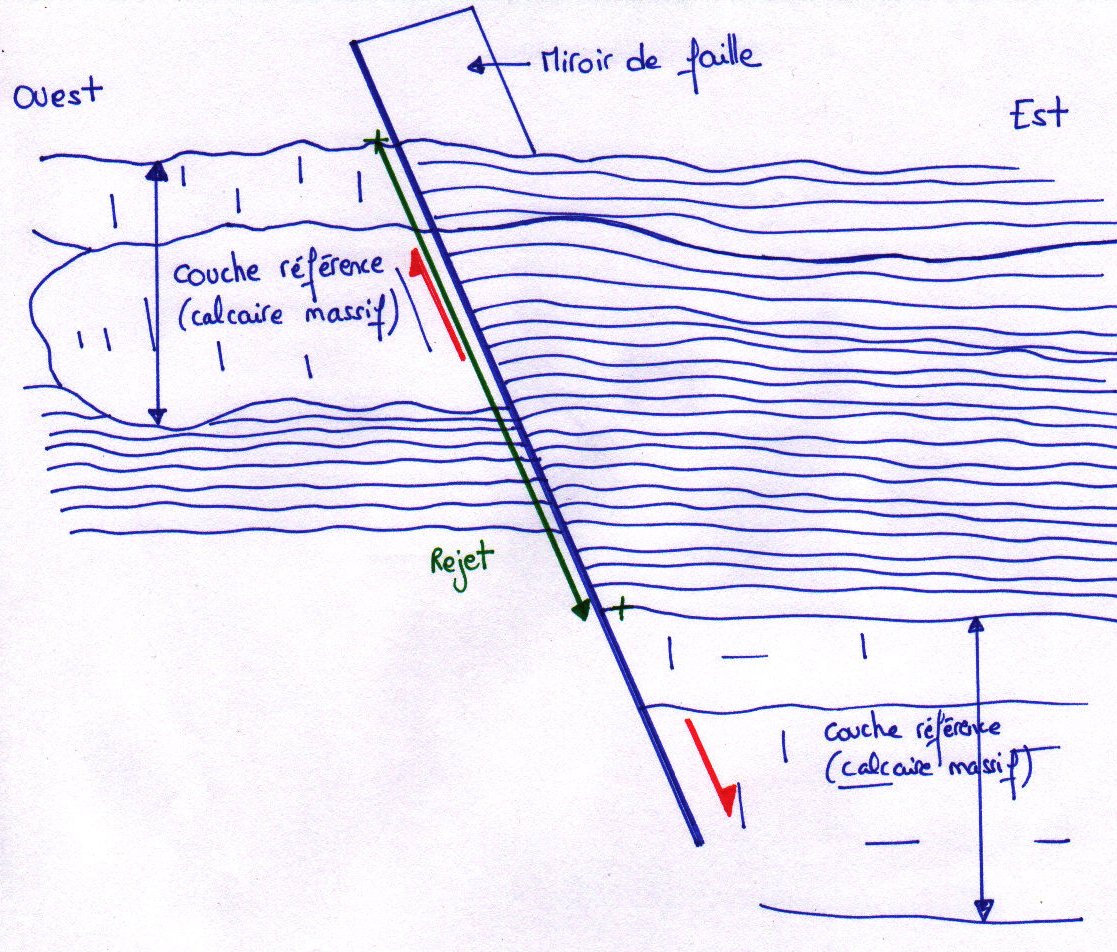 Miroir de faille
Ouest
Est
couche référence
(calcaire massif)
Rejet
couche référence
(calcaire massif)